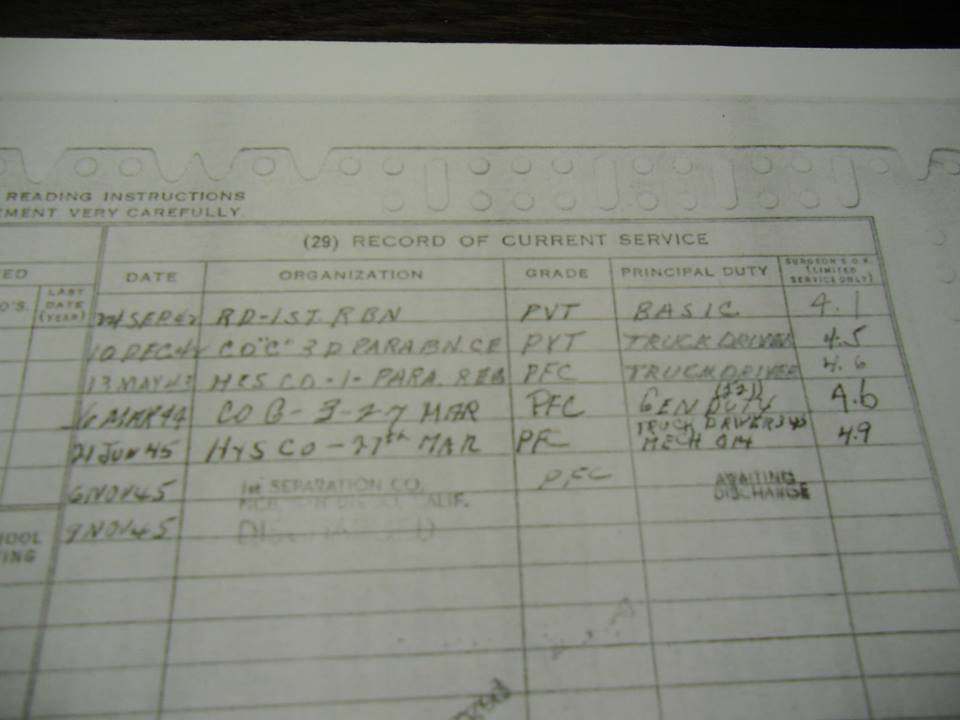 READING INSTRUCTIONS
MENT VERY CAREFULLY.
(29) RECORD OF CURRENT SERVICE
ED DATE ORGANIZATION GRADE PRINCIPAL DUTY SURGEON'S O.K. (LIMITED SERVICE ONLY)
O'S. LAST DATE (YEAR)
SEP RD-1ST. RBN PVT BASIC 4.1
10 DEC CO "C" 3D PARA BN. PVT TRUCK DRIVER 4.5
13 MAY H&S CO-1- PARA. PFC TRUCK DRIVER 4.6
6 MAR 44 CO G-3-27 MAR PFC GEN DUTY (521) 4.6
21 JUN 45 H&S CO-27th MAR PFC TRUCK DRIVER 345 MECH 014 4.9
6 NOV 45 1st SEPARATION CO. CALIF. PFC AWAITING DISCHARGE
9 NOV 45
HOOL
ING